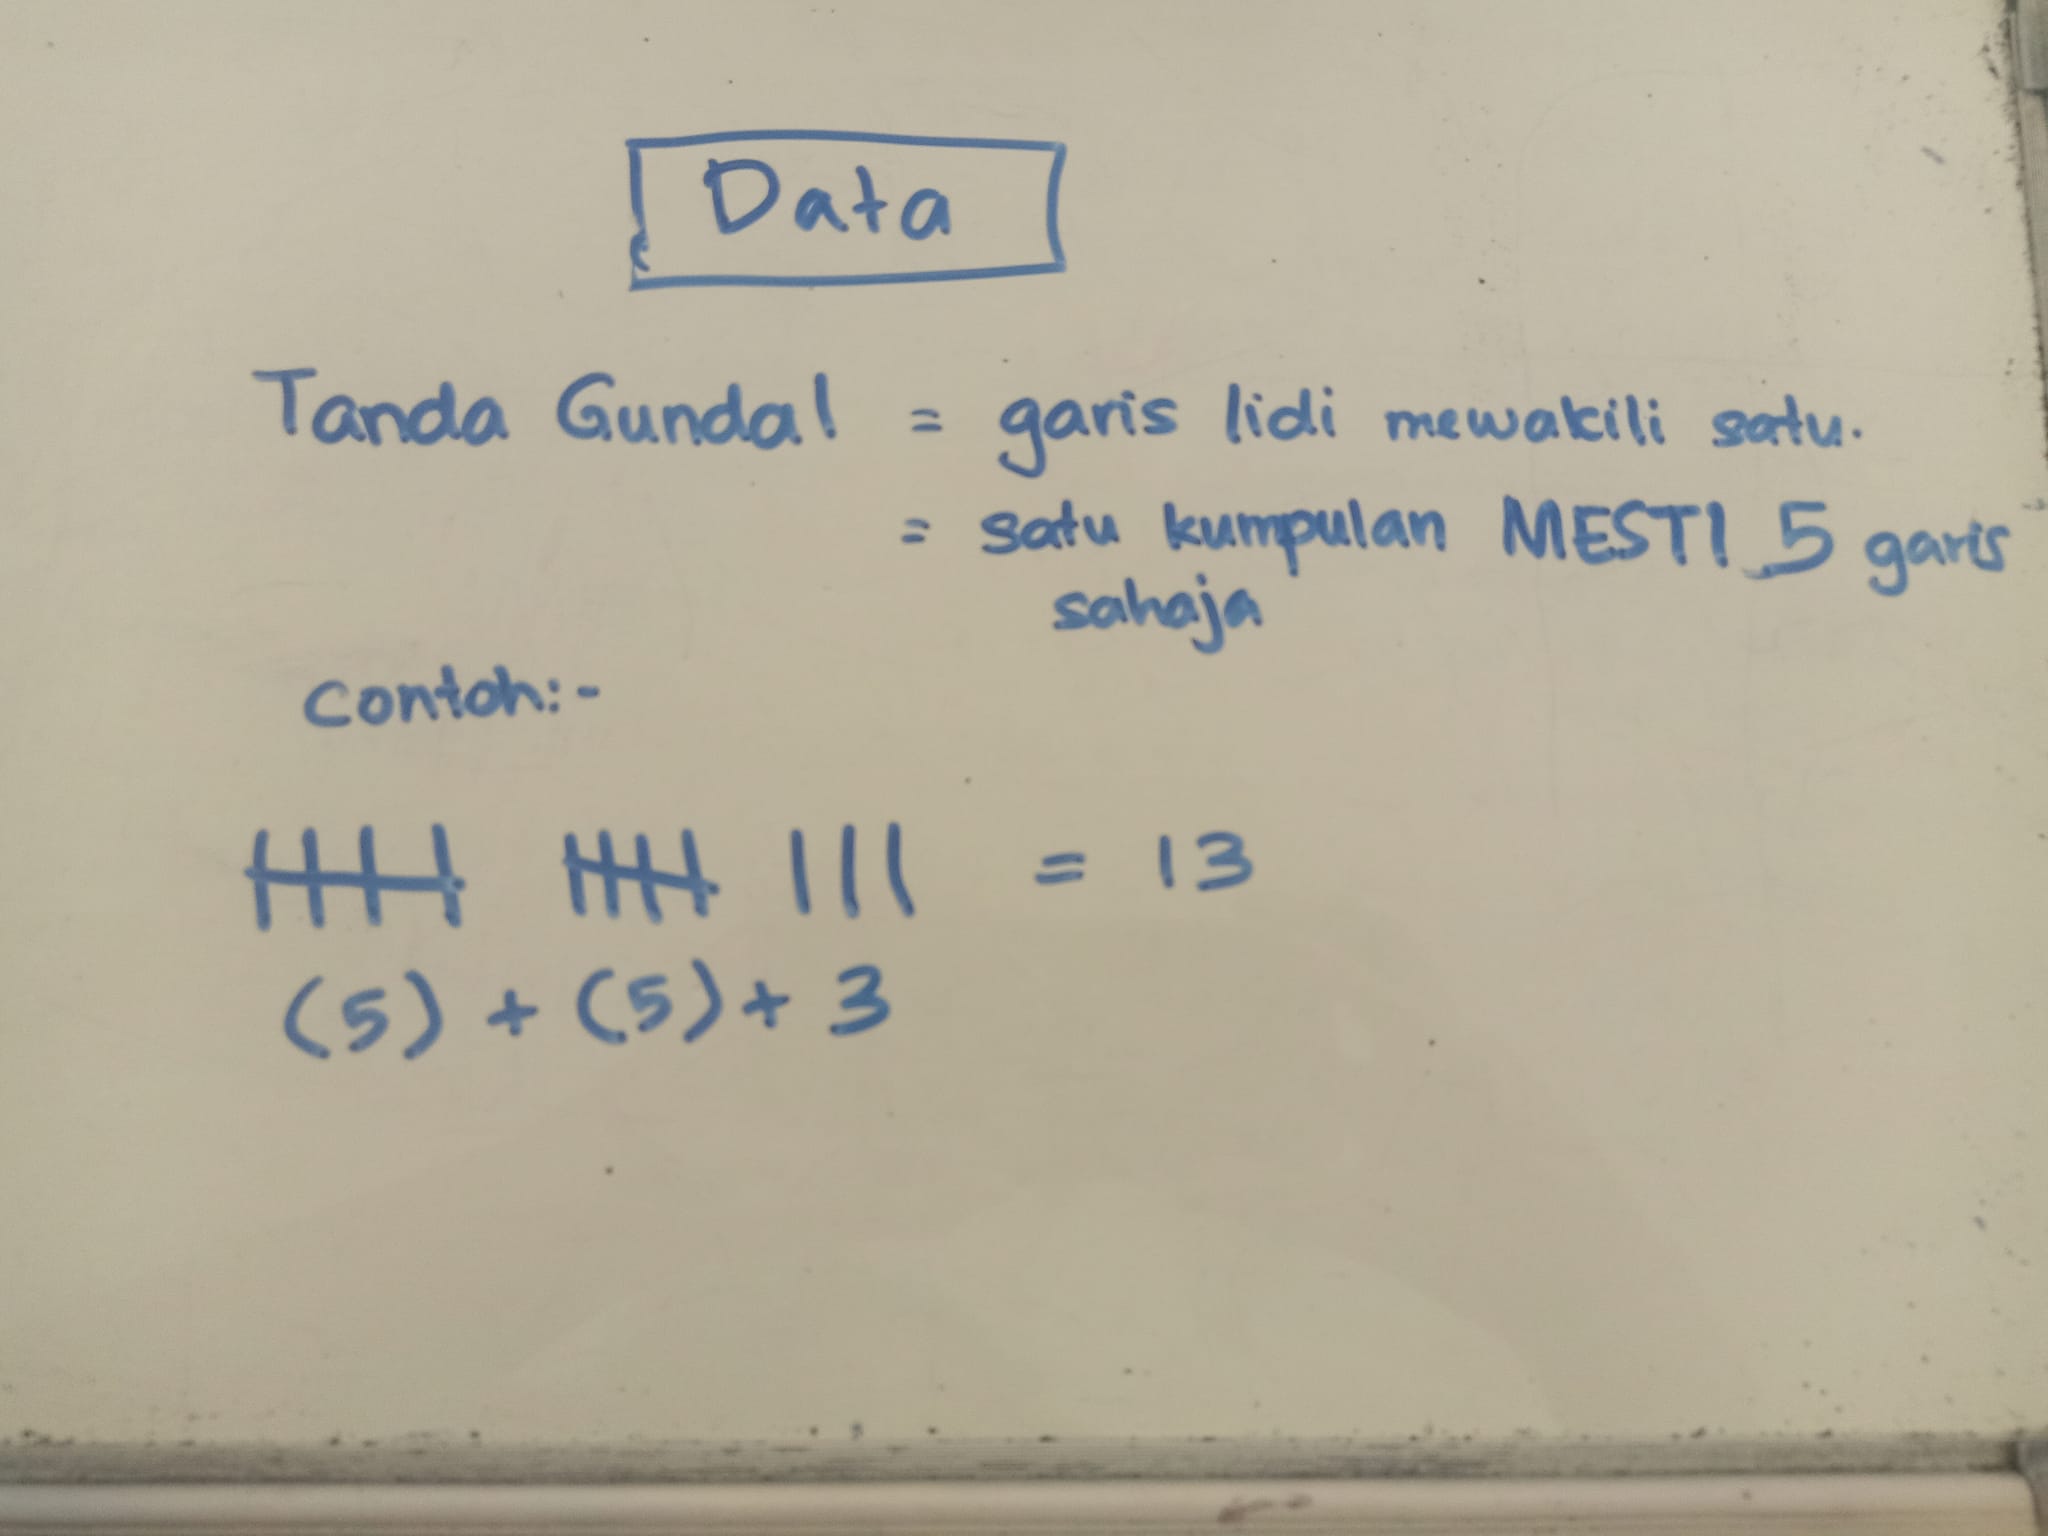 Data
Tanda Gundal = garis lidi mewakili satu.
= satu kumpulan MESTI 5 garis
sahaja
Contoh:-
||| = 13
(5) + (5) + 3